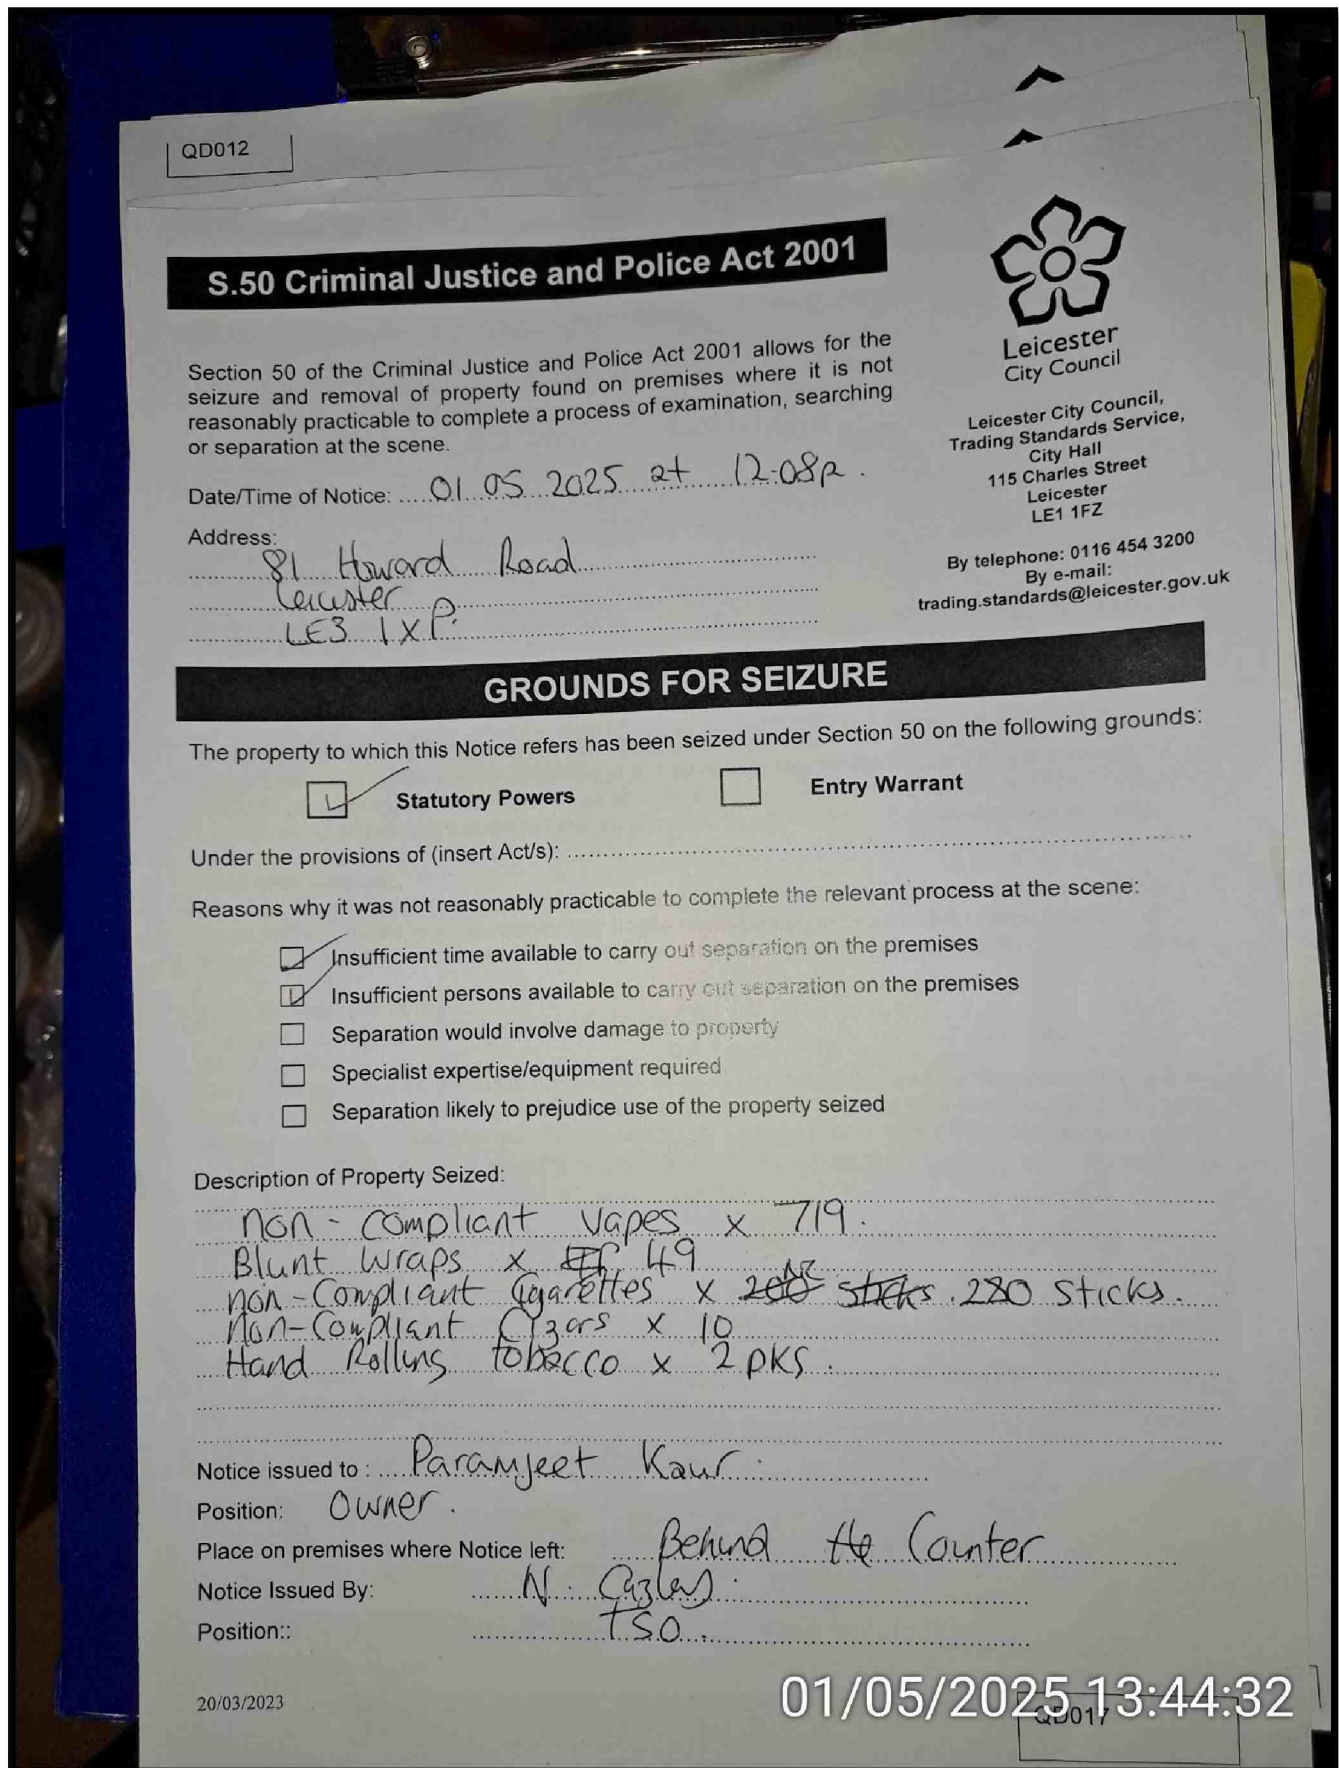 QD012
S.50 Criminal Justice and Police Act 2001
Leicester
City Council
Section 50 of the Criminal Justice and Police Act 2001 allows for the
seizure and removal of property found on premises where it is not
reasonably practicable to complete a process of examination, searching
or separation at the scene.
Leicester City Council,
Trading Standards Service,
City Hall
115 Charles Street
Leicester
LE1 1FZ
By telephone: 0116 454 3200
By e-mail:
trading.standards@leicester.gov.uk
Date/Time of Notice: 01 05 2025 at 12:08p.
Address:
81 Howard Road
Leicester
LE3 1XP.
GROUNDS FOR SEIZURE
The property to which this Notice refers has been seized under Section 50 on the following grounds:
Statutory Powers Entry Warrant
Under the provisions of (insert Act/s):
Reasons why it was not reasonably practicable to complete the relevant process at the scene:
Insufficient time available to carry out separation on the premises
Insufficient persons available to carry out separation on the premises
Separation would involve damage to property
Specialist expertise/equipment required
Separation likely to prejudice use of the property seized
Description of Property Seized:
non-compliant vapes x 719.
Blunt Wraps x 49
non-Compliant Cigarettes x 200 sticks. 280 sticks.
Non-Compliant Cigars x 10
Hand Rolling tobacco x 2 pks.
Notice issued to : Paramjeet Kaur.
Position: Owner.
Place on premises where Notice left: Behind the Counter
Notice Issued By: N.
Position:: TSO.
20/03/2023
01/05/2025 13:44:32
QD017